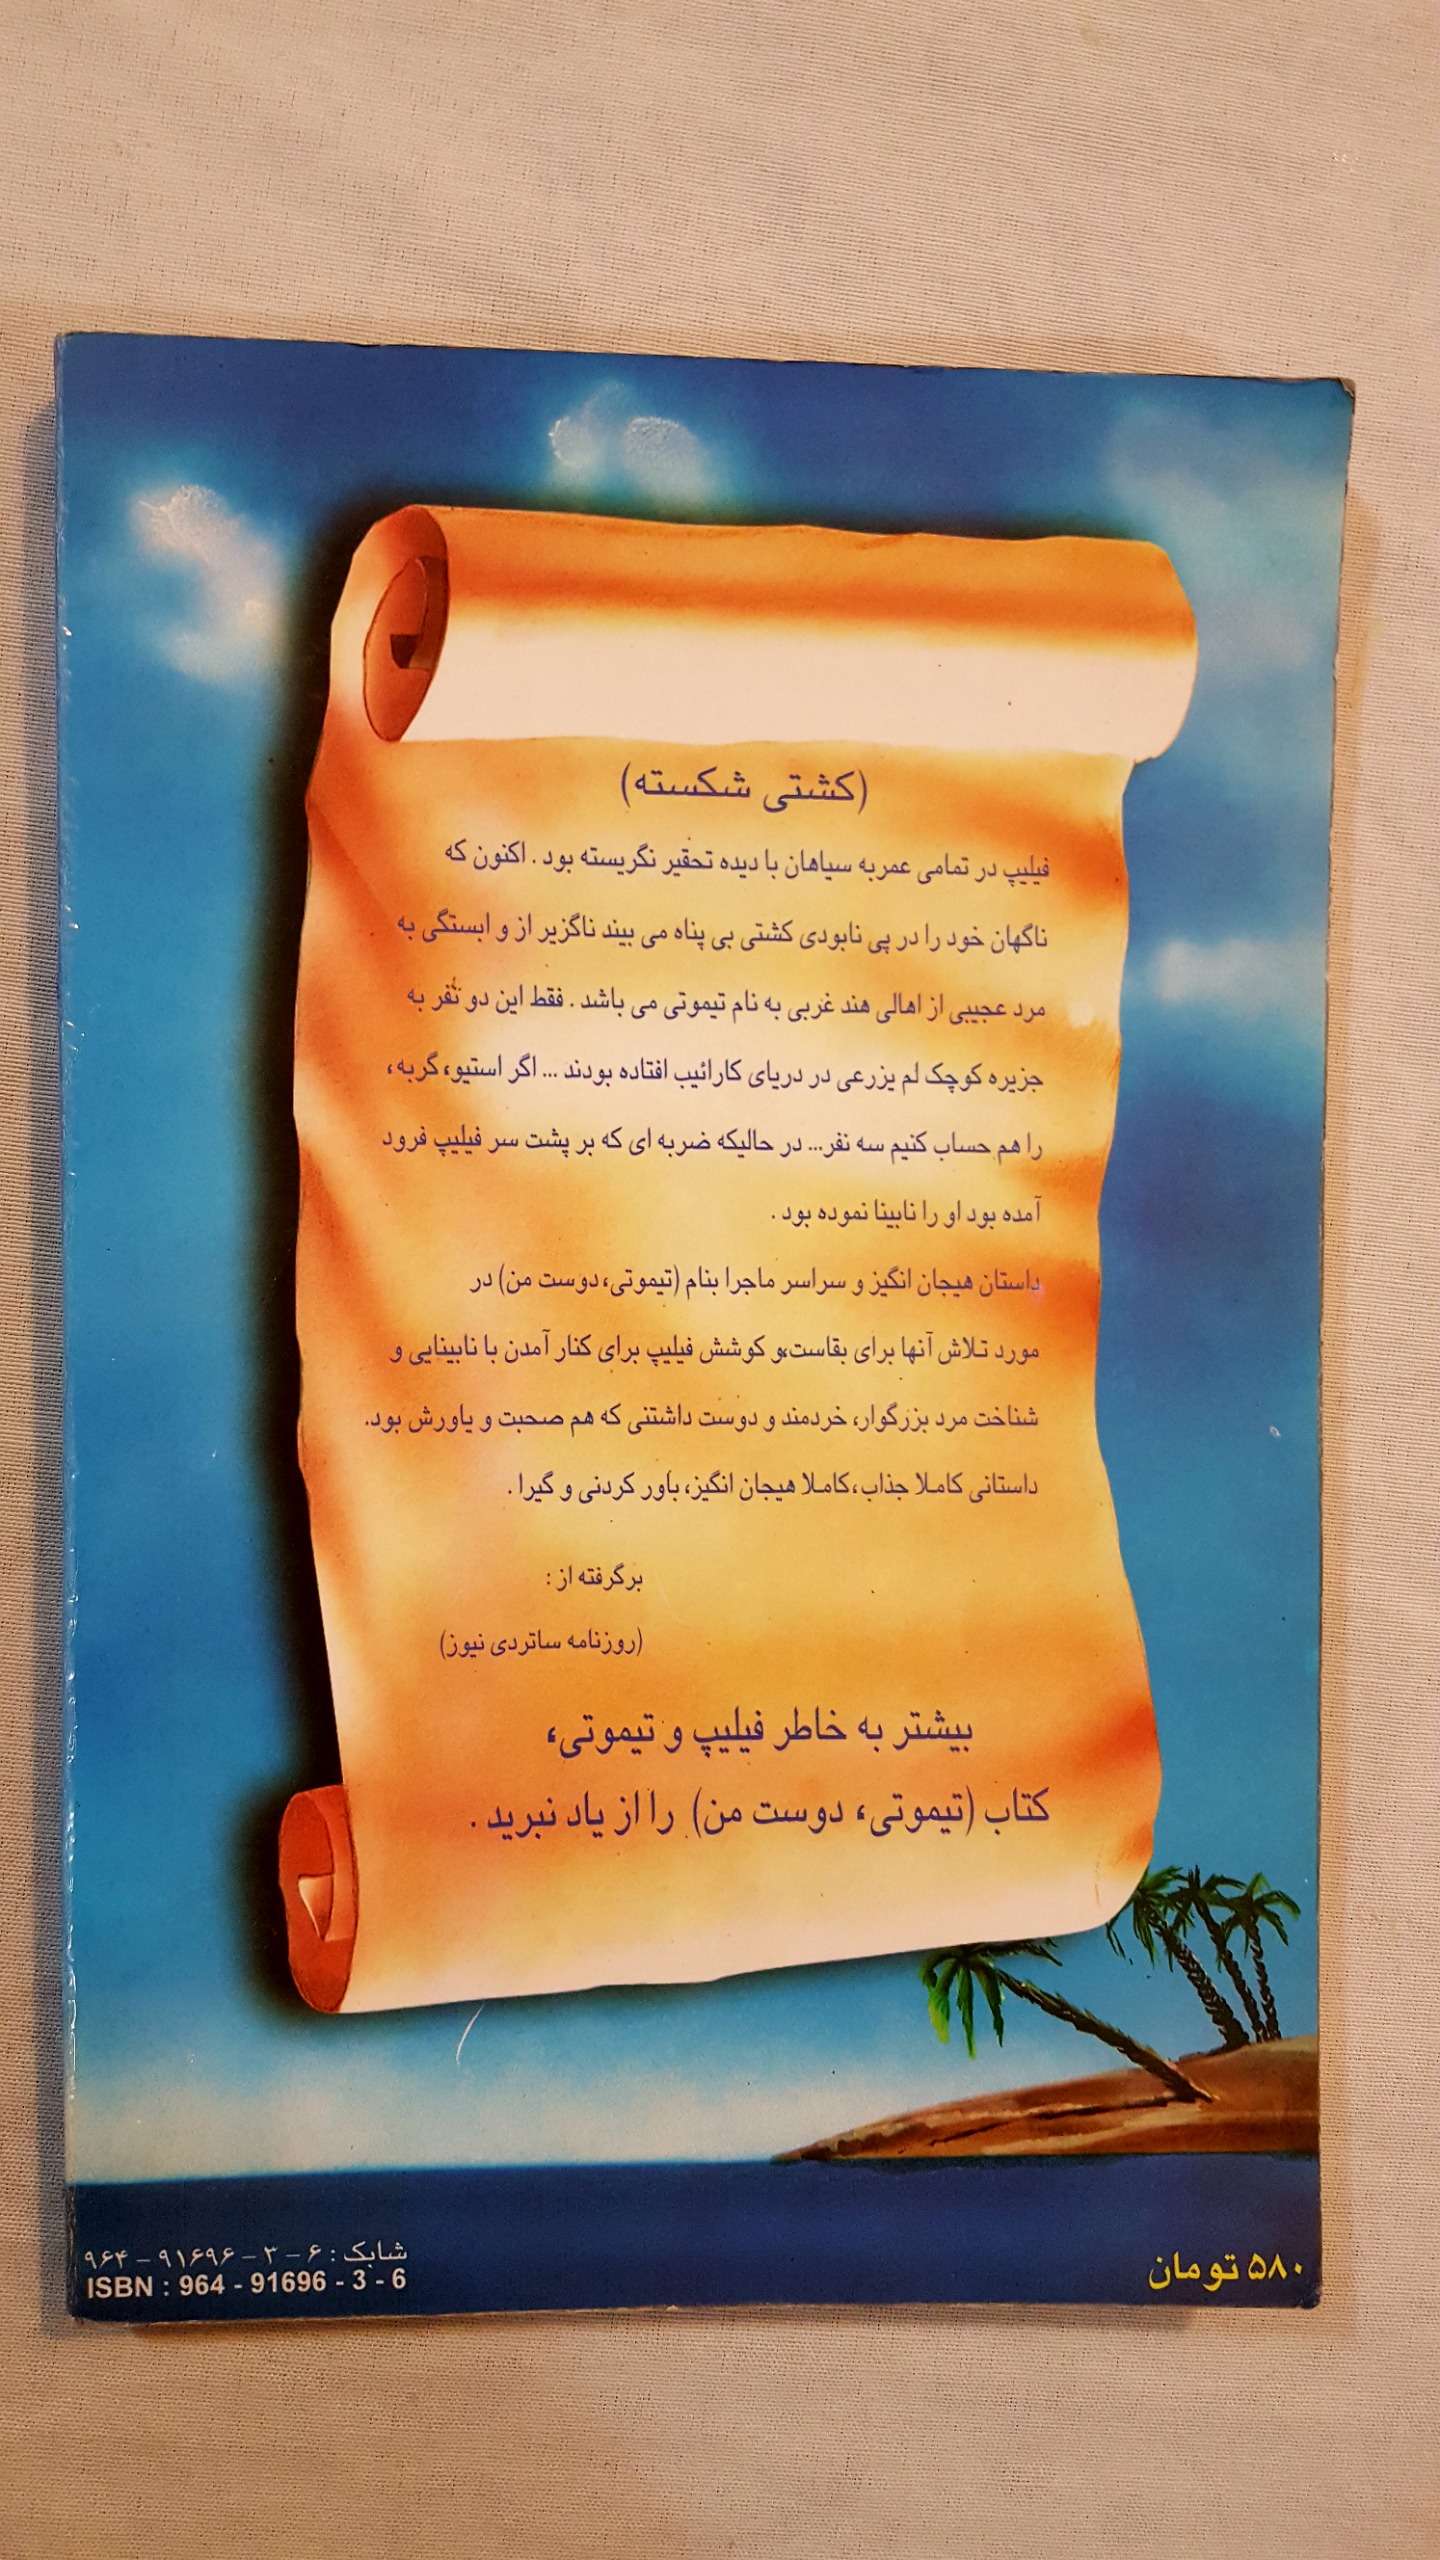 (کشتی شکسته)
فیلیپ در تمامی عمربه سیاهان با دیده تحقیر نگریسته بود . اکنون که
ناگهان خود را در پی نابودی کشتی بی پناه می بیند ناگزیر از و ابستگی به
مرد عجیبی از اهالی هند غربی به نام تیموتی می باشد . فقط این دو نفر به
جزیره کوچک لم یزرعی در دریای کارائیب افتاده بودند ... اگر استیو، گربه،
را هم حساب کنیم سه نفر... در حالیکه ضربه ای که بر پشت سر فیلیپ فرود
آمده بود او را نابینا نموده بود .
داستان هیجان انگیز و سراسر ماجرا بنام (تیموتی، دوست من) در
مورد تلاش آنها برای بقاست،و کوشش فیلیپ برای کنار آمدن با نابینایی و
شناخت مرد بزرگوار، خردمند و دوست داشتنی که هم صحبت و یاورش بود.
داستانی کاملا جذاب،کاملا هیجان انگیز، باور کردنی و گیرا .
برگرفته از :
(روزنامه ساتردی نیوز)
بیشتر به خاطر فیلیپ و تیموتی،
کتاب (تیموتی، دوست من) را از یاد نبرید .
شابک : ۶ - ۳ - ۹۱۶۹۶ - ۹۶۴
ISBN : 964 - 91696 - 3 - 6
۵۸۰ تومان